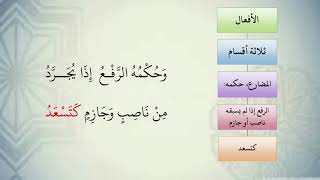 الأفعال
ثلاثة أقسام
المضارع، حكمه:
الرفع إذا لم يسبقه
ناصب أو جازم
كتسعد
وَحُكْمُهُ الرَّفْعُ إِذَا يُجَرَّدُ
مِنْ نَاصِبٍ وَجَازِمٍ كَتَسْعَدُ